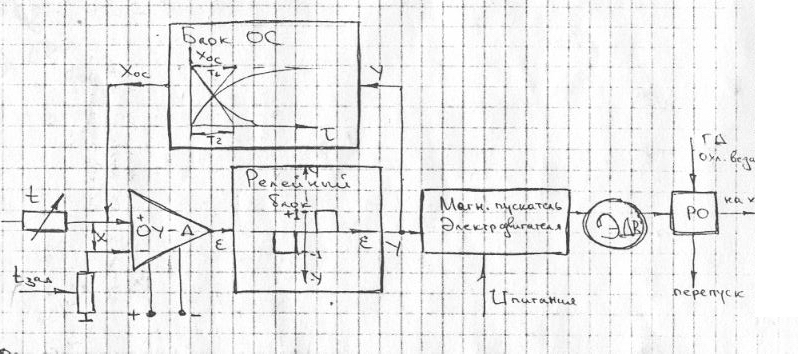 Блок ОС
Xос
T1
T2
τ
Xос
y
t
+
X
ОУ-Δ
-
tзад
+ -
ε
Релейный
блок
y
+1
-1
ε
y
y
Магн. пускатель
Электродвигателя
Uпитания
ЭДВ
РО
ГД
охл. вода
на х
перепуск